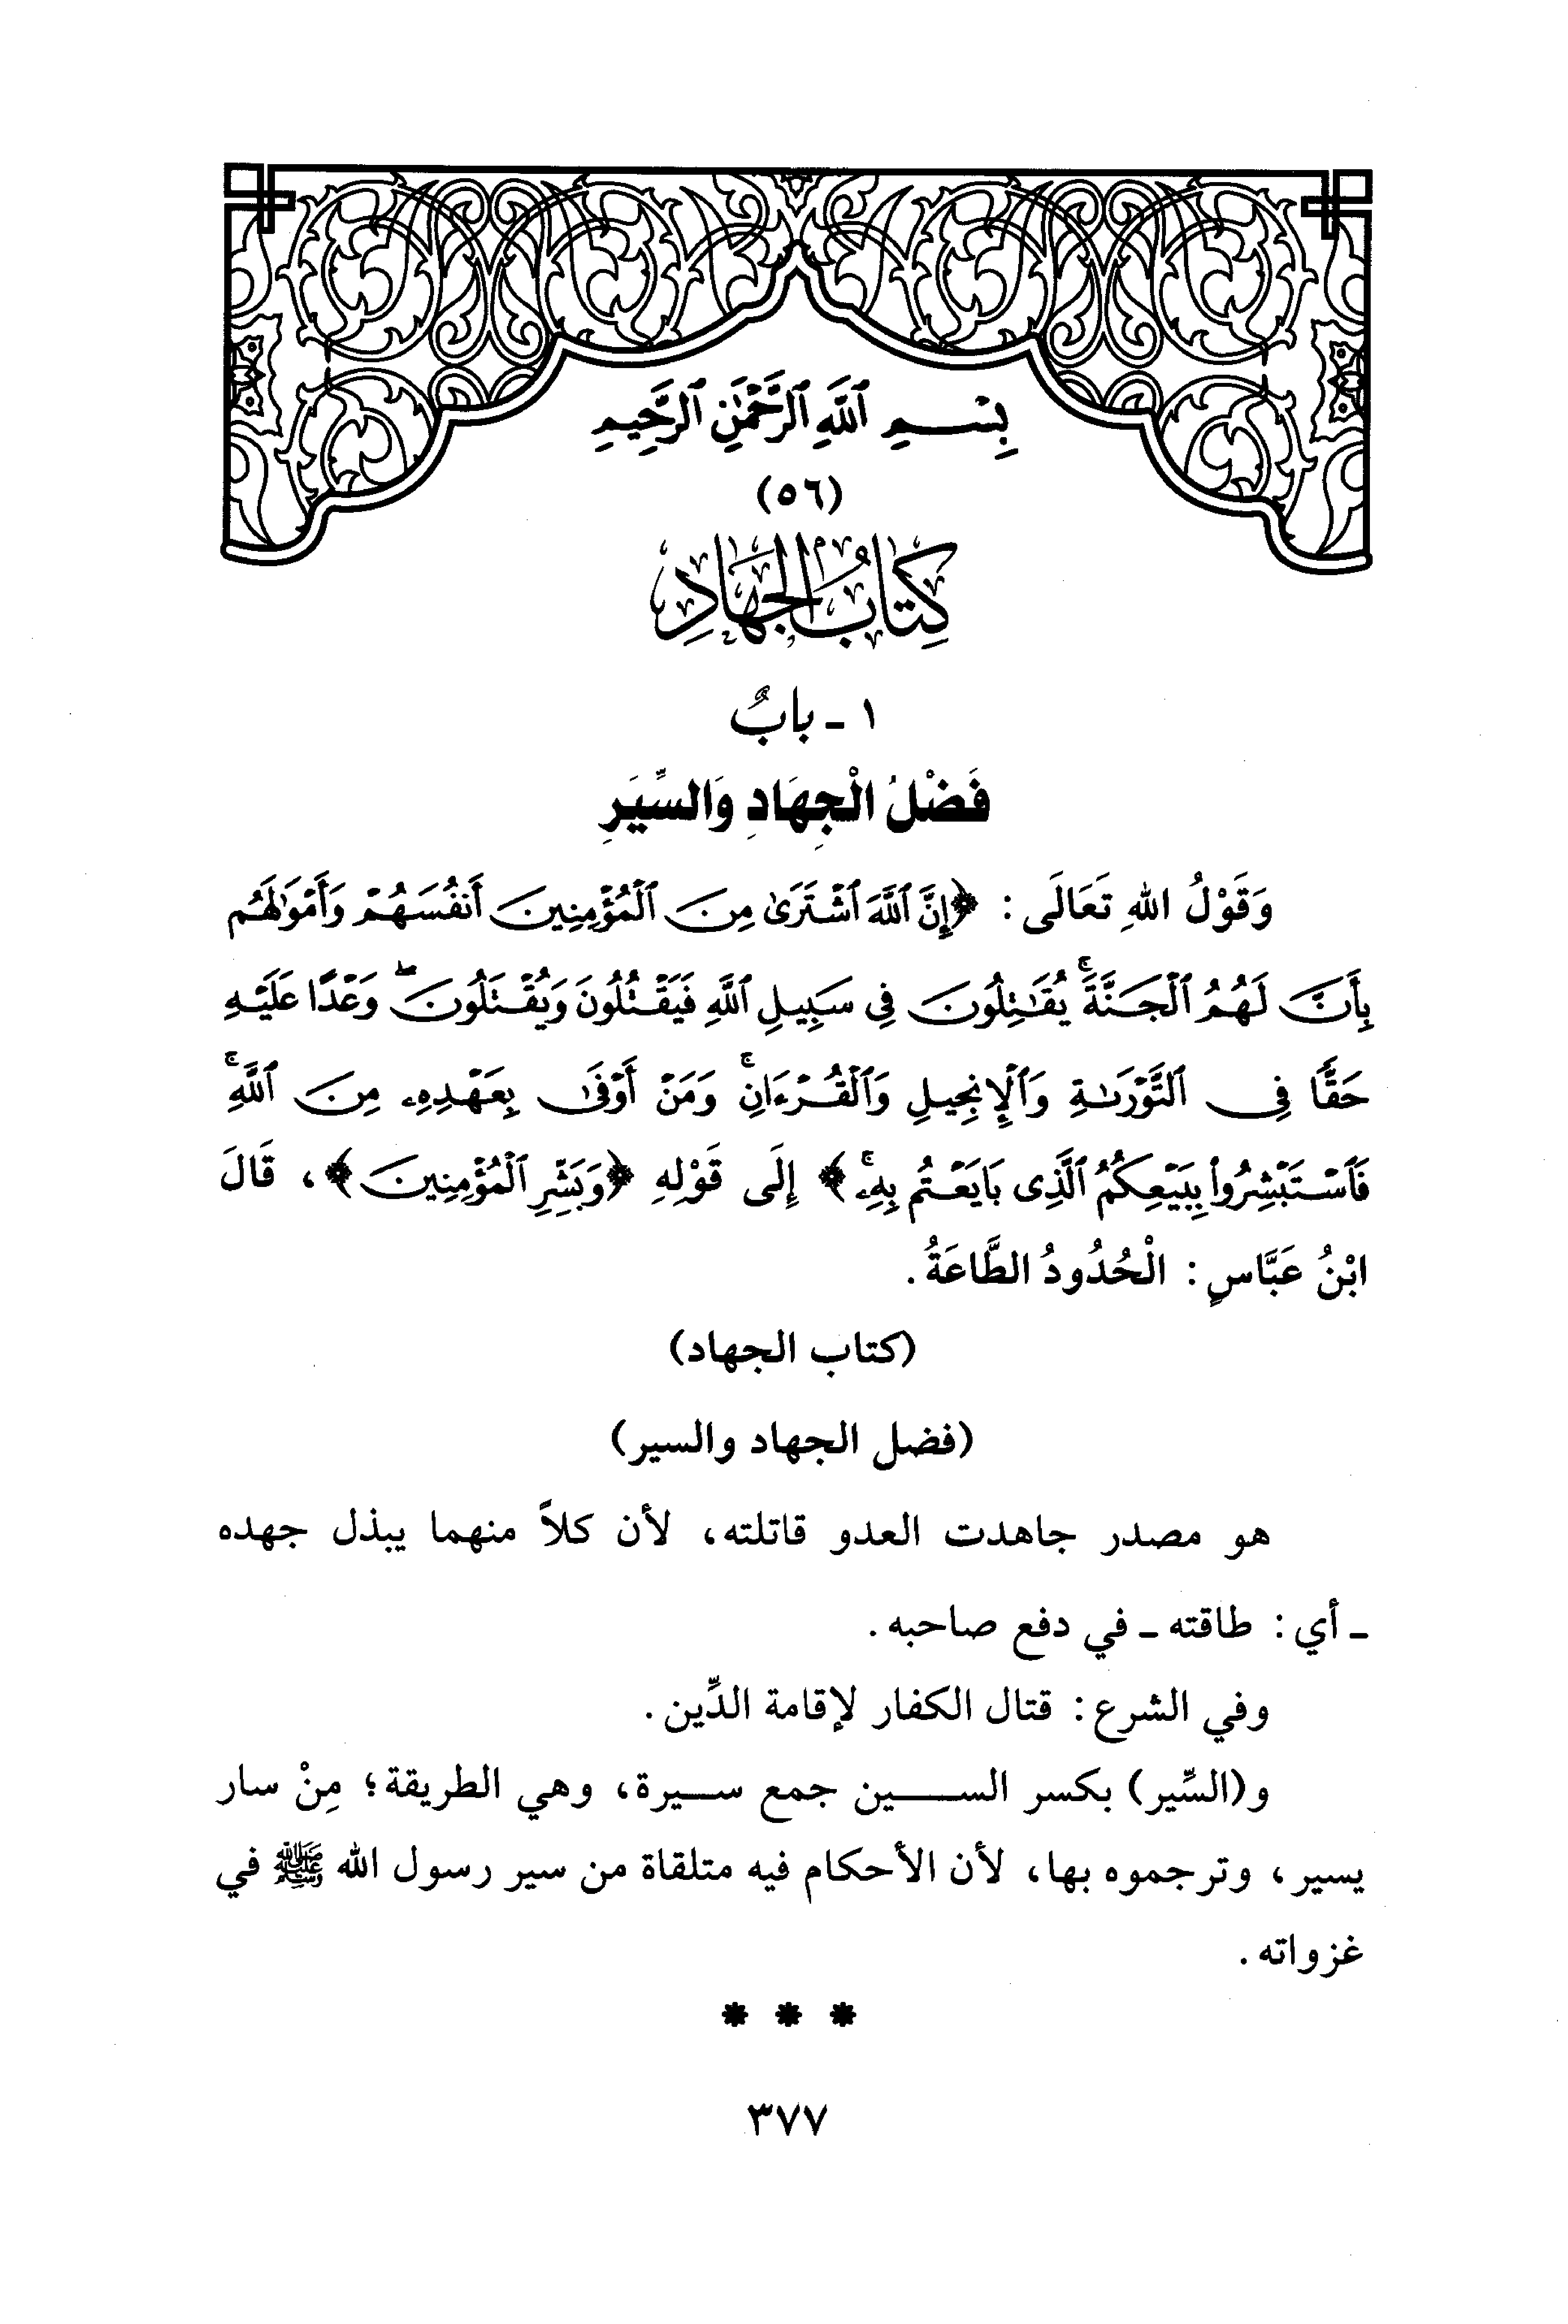 بِسْمِ ٱللَّهِ ٱلرَّحْمَٰنِ ٱلرَّحِيمِ
(٥٦)
كِتَابُ الجِهَادِ
١ - بابٌ
فَضْلُ الْجِهَادِ وَالسِّيَرِ
وَقَوْلُ اللهِ تَعَالَى: ﴿إِنَّ ٱللَّهَ ٱشْتَرَىٰ مِنَ ٱلْمُؤْمِنِينَ أَنفُسَهُمْ وَأَمْوَٰلَهُم
بِأَنَّ لَهُمُ ٱلْجَنَّةَ ۚ يُقَٰتِلُونَ فِي سَبِيلِ ٱللَّهِ فَيَقْتُلُونَ وَيُقْتَلُونَ ۖ وَعْدًا عَلَيْهِ
حَقًّا فِي ٱلتَّوْرَىٰةِ وَٱلْإِنجِيلِ وَٱلْقُرْءَانِ ۚ وَمَنْ أَوْفَىٰ بِعَهْدِهِۦ مِنَ ٱللَّهِ ۚ
فَٱسْتَبْشِرُوا۟ بِبَيْعِكُمُ ٱلَّذِى بَايَعْتُم بِهِۦ ۚ﴾ إِلَى قَوْلِهِ ﴿وَبَشِّرِ ٱلْمُؤْمِنِينَ﴾، قَالَ
ابْنُ عَبَّاسٍ: الْحُدُودُ الطَّاعَةُ.
(كتاب الجهاد)
(فضل الجهاد والسير)
هو مصدر جاهدت العدو قاتلته، لأن كلاً منهما يبذل جهده
ـ أي: طاقته ـ في دفع صاحبه.
وفي الشرع: قتال الكفار لإقامة الدِّين.
و(السِّير) بكسر الســـين جمع سـيرة، وهي الطريقة؛ مِنْ سار
يسير، وترجموه بها، لأن الأحكام فيه متلقاة من سير رسول الله ﷺ في
غزواته.
* * *
٣٧٧